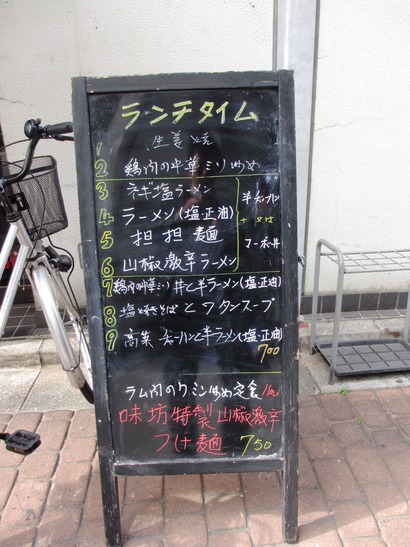 ランチタイム
1 生姜焼
2 鶏肉の中華ミソ炒め
3 ネギ塩ラーメン
4 ラーメン(塩・正油)
5 担担麺
6 山椒激辛ラーメン
半チャーハン
又は
7 鶏肉中華ミソ丼と半ラーメン(塩・正油)
8 塩焼そばとワンタンスープ
9 高菜チャーハンと半ラーメン(塩・正油)
700
ラム肉のクミン炒め定食
味坊特製山椒激辛
つけ麺 750